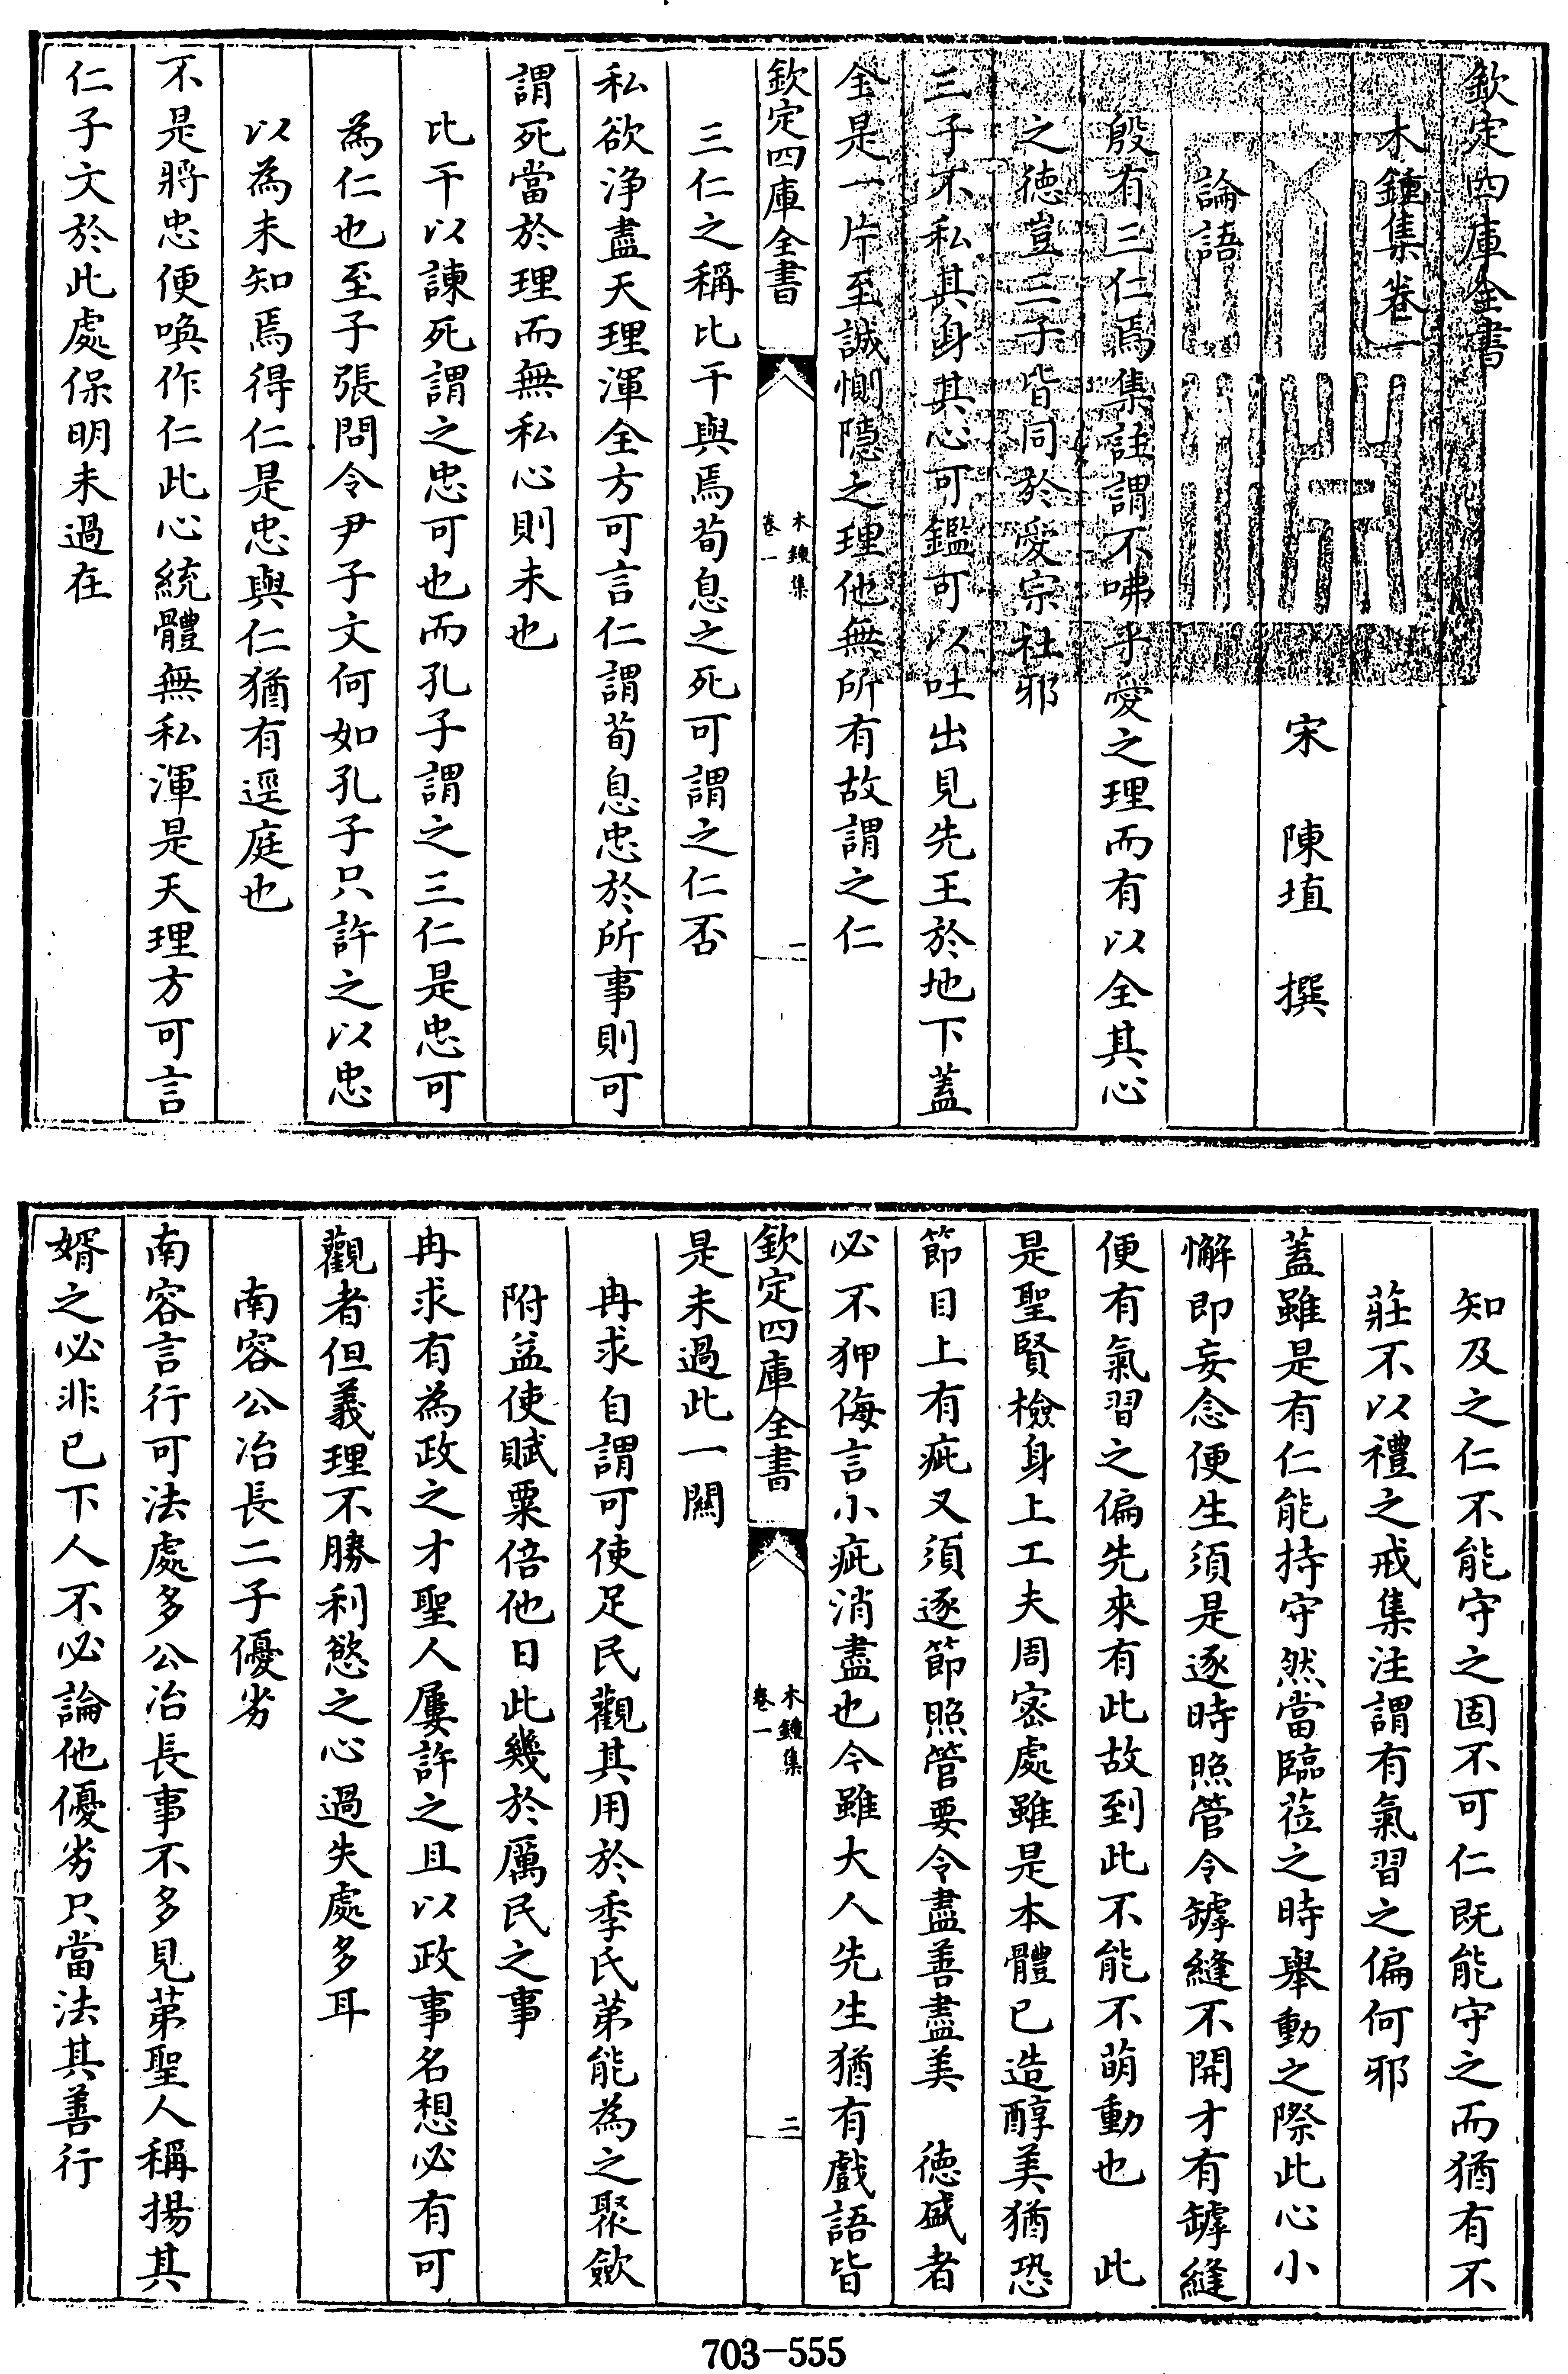 欽定四庫全書
木鍾集卷一
宋 陳埴 撰
論語
殷有三仁焉集註謂不咈乎愛之理而有以全其心
之徳豈三子皆同於愛宗社邪
三子不私其身其心可鑑可以吐出見先王於地下蓋
全是一片至誠惻隠之理他無所有故謂之仁
欽定四庫全書
木鍾集
卷一
一
三仁之稱比干與焉荀息之死可謂之仁否
私欲浄盡天理渾全方可言仁謂荀息忠於所事則可
謂死當於理而無私心則未也
比干以諫死謂之忠可也而孔子謂之三仁是忠可
為仁也至子張問令尹子文何如孔子只許之以忠
以為未知焉得仁是忠與仁猶有逕庭也
不是將忠便喚作仁此心統體無私渾是天理方可言
仁子文於此處保明未過在
知及之仁不能守之固不可仁既能守之而猶有不
莊不以禮之戒集注謂有氣習之偏何邪
蓋雖是有仁能持守然當臨莅之時舉動之際此心小
懈即妄念便生須是逐時照管令罅縫不開才有罅縫
便有氣習之偏先來有此故到此不能不萌動也 此
是聖賢檢身上工夫周密處雖是本體已造醇美猶恐
節目上有疵又須逐節照管要令盡善盡美 徳盛者
必不狎侮言小疵消盡也今雖大人先生猶有戲語皆
欽定四庫全書
木鍾集
卷一
二
是未過此一關
冉求自謂可使足民觀其用於季氏苐能為之聚斂
附益使賦粟倍他日此幾於厲民之事
冉求有為政之才聖人屢許之且以政事名想必有可
觀者但義理不勝利慾之心過失處多耳
南容公冶長二子優劣
南容言行可法處多公冶長事不多見苐聖人稱揚其
婿之必非已下人不必論他優劣只當法其善行
703-555